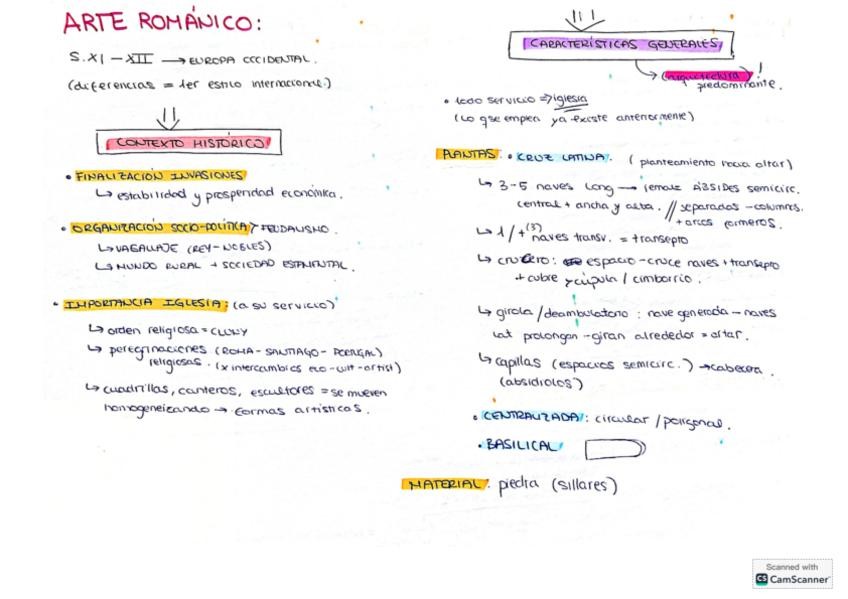 ARTE ROMÁNICO:
S. XI – XII → EUROPA OCCIDENTAL.
(diferencias = 1er estilo internacional)
CONTEXTO HISTÓRICO
• FINALIZACIÓN INVASIONES
↳ estabilidad y prosperidad económica.
• ORGANIZACIÓN SOCIO-POLÍTICA FEUDALISMO.
↳ VASALLAJE (REY-NOBLES)
↳ MUNDO RURAL + SOCIEDAD ESTAMENTAL.
• IMPORTANCIA IGLESIA: (a su servicio)
↳ orden religiosa = CLUNY
↳ peregrinaciones (ROMA-SANTIAGO-
religiosas. (x intercambios eco-cult-artist)
↳ cuadrillas, canteros, escultores = se mueven
homogeneizando → formas artísticas.
CARACTERÍSTICAS GENERALES
↳ (arquitectura)!
predominante.
• todo servicio ⇒ iglesia
(Lo que emplea ya existe anteriormente)
PLANTAS: • CRUZ LATINA. (planteamiento hacia altar)
↳ 3-5 naves long → remate ÁBSIDES semicirc.
central + ancha y alta. // separadas - columnas.
+ arcos formeros.
↳ 1/+(3) naves transv. = transepto
↳ crucero: espacio-cruce naves + transepto
+ cubre cúpula / cimborrio.
↳ girola / deambulatorio: nave generada - naves
lat prolongan - giran alrededor = altar.
↳ capillas (espacios semicirc.) → cabecera.
(absidiolos)
• CENTRALIZADA: circular / poligonal.
• BASILICAL
MATERIAL: piedra (sillares)
Scanned with
CS CamScanner